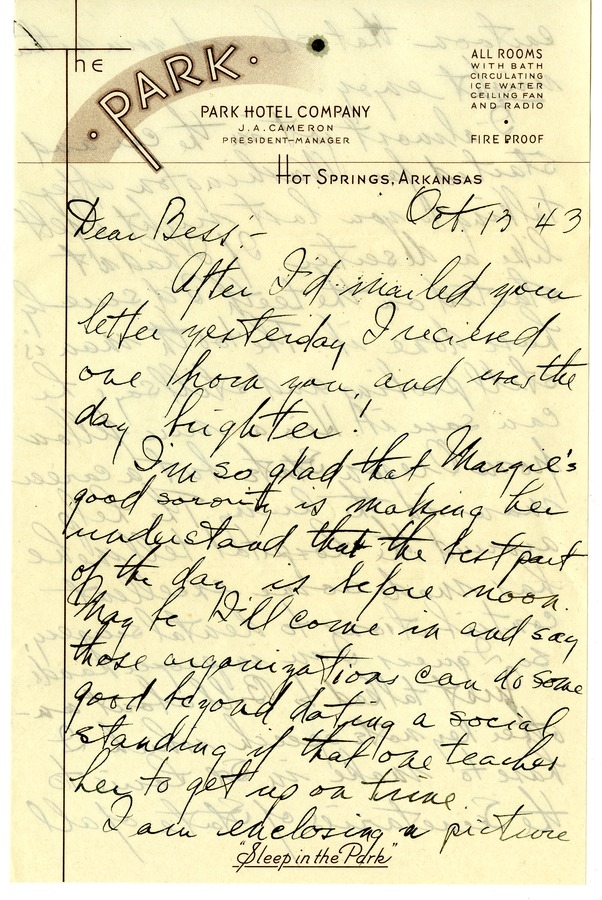 The
PARK
PARK HOTEL COMPANY
J. A. CAMERON
PRESIDENT-MANAGER
HOT SPRINGS, ARKANSAS
ALL ROOMS
WITH BATH
CIRCULATING
ICE WATER
CEILING FAN
AND RADIO
FIRE PROOF
Oct. 13 '43
Dear Bess:-
After I'd mailed your
letter yesterday I recieved
one from you, and was the
day brighter!
I'm so glad that Margie's
good sorority is making her
understand that the best part
of the day is before noon.
May be I'll come in and say
those organizations can do some
good beyond dating a social
standing if that one teaches
her to get up on time.
I am enclosing a picture
"Sleep in the Park"